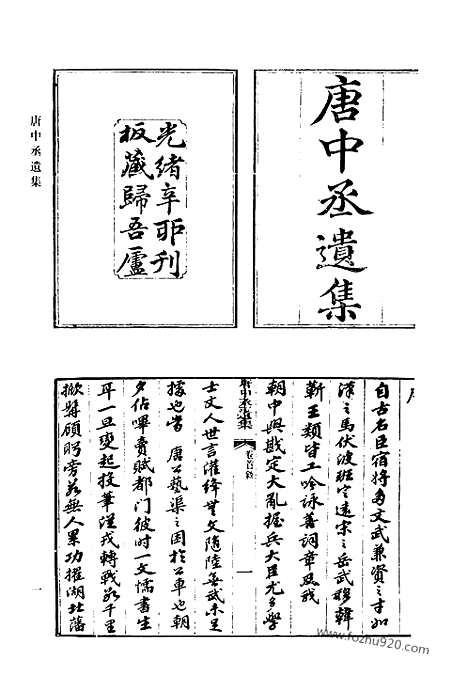 唐中丞遺集
光緒辛卯刊
板藏歸吾廬
唐中丞遺集
自古名臣宿將多文武兼資之才如
漢之馬伏波班定遠宋之岳武穆韓
蘄王類皆工吟詠善詞章及我
朝中興戡定大亂握兵大臣尤多學
唐中丞遺集
卷首敘
一
士文人世言灌絳無文隨陸無武未足
據也當 唐公藝渠之困於公車也朝
夕佔畢賣賦都門彼時一文懦書生
耳一旦變起投筆從戎轉戰數千里
掀髯顧盼旁若無人累功擢湖北藩
一
www.fozhu920.com